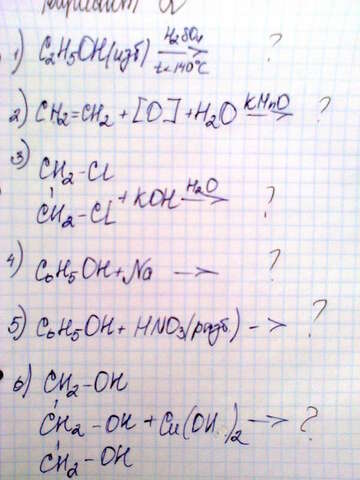 Вариант 2
1) C2H5OH(изб) H2SO4 t<140°C → ?
2) CH2=CH2 + [O] + H2O KMnO → ?
3)
CH2-Cl
CH2-Cl + KOH H2O → ?
4) C6H5OH + Na → ?
5) C6H5OH + HNO3(разб) → ?
6) CH2-OH
CH2-OH + Cu(OH)2 → ?
CH2-OH